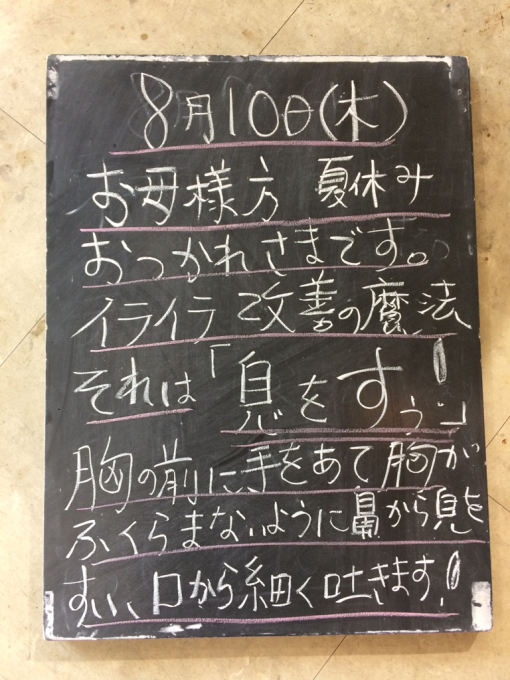 8月10日(木)
お母様方 夏休み
おつかれさまです。
イライラ改善の魔法
それは「息をすう!」
胸の前に手をあて胸が
ふくらまないように鼻から息を
すい、口から細く吐きます!